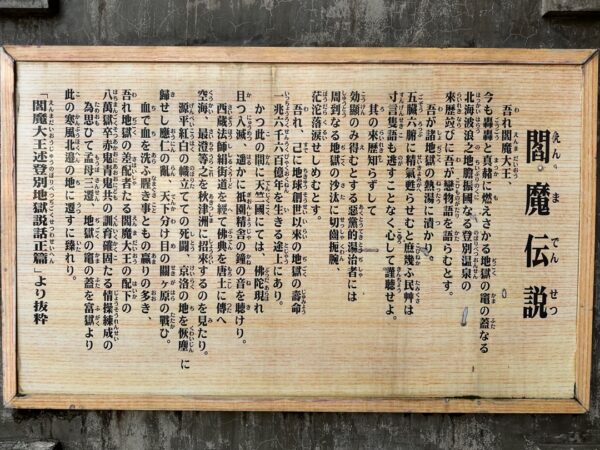 閻魔伝説
吾れ閻魔大王、
今も轟轟と真緒に燃えさかる地獄の竈の蓋なる
北海波浪之地膽振國なる登別温泉の
来歴並びに吾が戀物語を語らむとす。
吾が諸地獄の熱湯に漬かり。
五臓六腑に精氣甦らせむと庶幾ふ民艸は
寸言隻語も逃すことなく心して謹聴せよ。
其の来歴知らずして
効顕のみ得むとする惡業的湯治者には
周到なる地獄の沙汰に切歯振腕、
茫沱落涙せしめむとす。
吾れ、ここに地球創世以来の地獄の壽命
一兆六千六百億年を生きる途上にあり。
かつ此の間に天竺國にては、佛陀現れ
且つ入滅、遥かに祇園精舎の鐘の音を聴けり。
西蔵法師絹街道を經て佛典を唐土に傳へ
空海、最澄等之を秋津洲に招来するのを見たり。
源平紅白の幟立てての死闘、京洛の地を恢塵に
歸せし應仁の亂、天下分け目の關ヶ原の戰ひ。
血で血を洗ふ腥き事ともの贏りの多き、
吾れ地獄の差配者たる閻魔大王の配下の
八萬獄卒赤鬼青鬼共の訓育確固たる情操練成の
為思ひて孟母三遷、地獄の竈の蓋を富嶽より
此の寒風北邊の地に遷すに臻れり。
「閻魔大王述登別地獄説話正篇」より抜粋